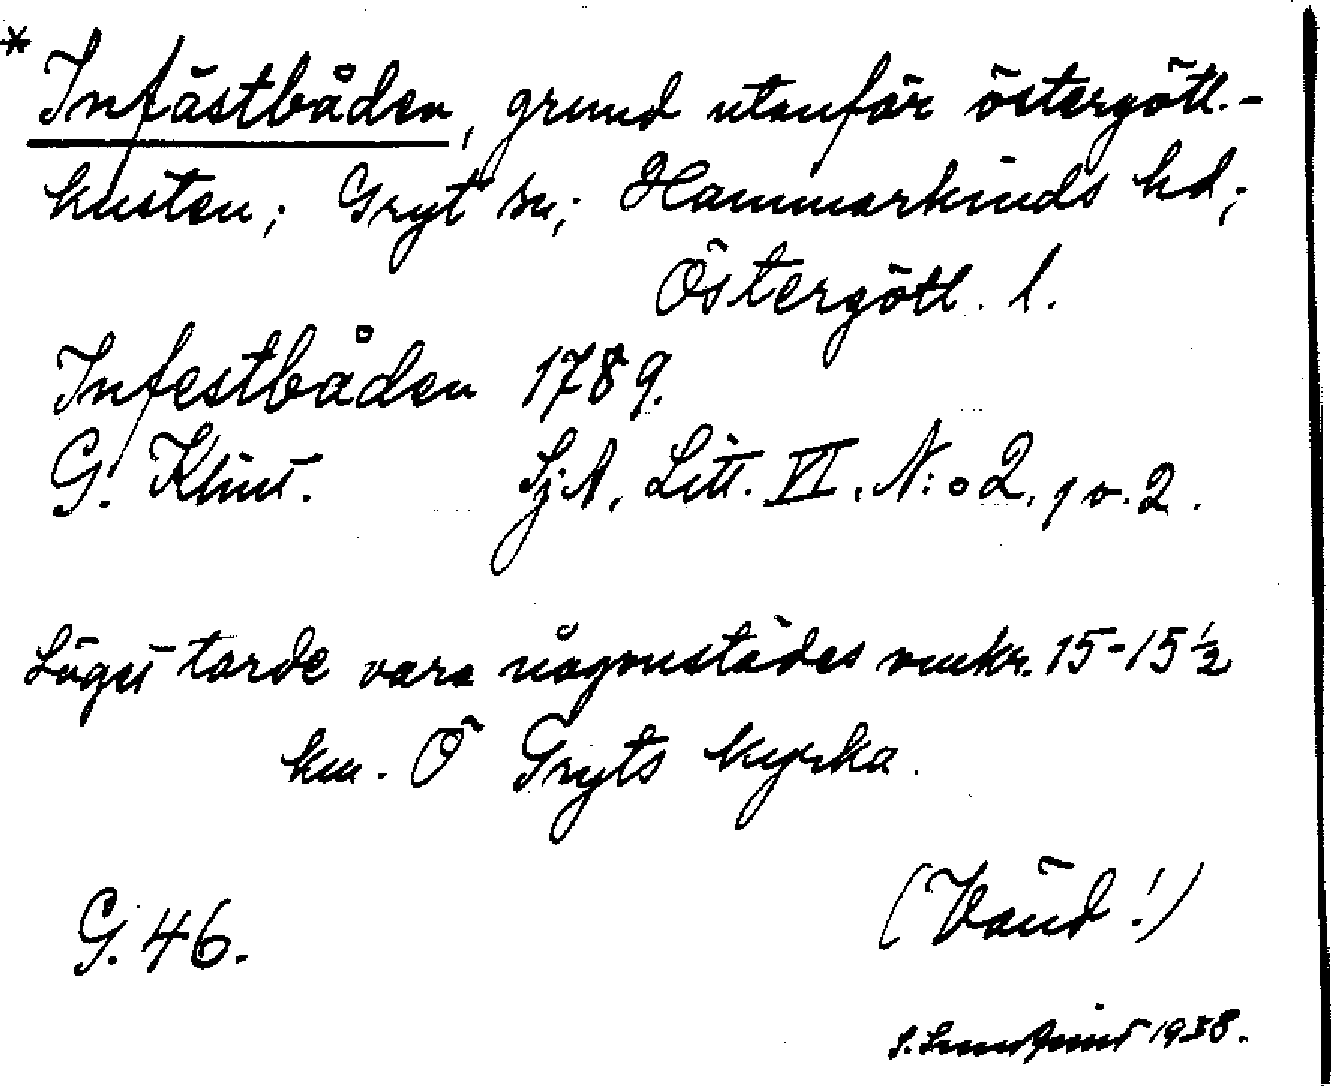 * Infästbåden, grund utanför östergötl.-
kusten; Gryt sn; Hammarkinds hd;
Östergötl. l.
Infestbåden 1789.
G. Klint. SjA, Litt. VI. N:o 2, 1 o. 2.
Läget torde vara någonstädes omkr. 15-15½
km. Ö Gryts kyrka.
G. 46. (Vänd!)
1938.